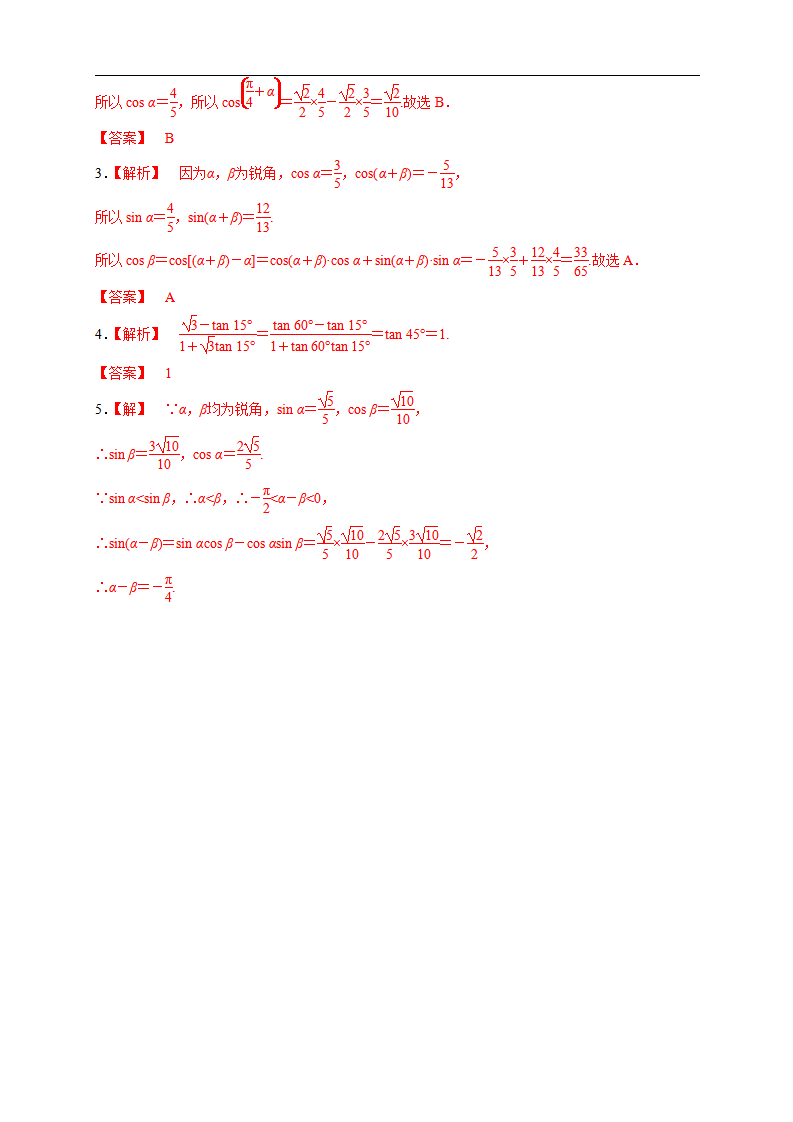 所以 cos α＝4/5，所以 cos(π/4＋α)＝√2/2×4/5－√2/2×3/5＝√2/10.故选 B．
【答案】 B
3.【解析】 因为α，β为锐角，cos α＝3/5，cos(α＋β)＝－5/13，
所以 sin α＝4/5，sin(α＋β)＝12/13.
所以 cos β＝cos[(α＋β)－α]＝cos(α＋β)·cos α＋sin(α＋β)·sin α＝－5/13×3/5＋12/13×4/5＝33/65.故选 A．
【答案】 A
4.【解析】 (√3－tan 15°)/(1＋√3tan 15°)＝(tan 60°－tan 15°)/(1＋tan 60°tan 15°)＝tan 45°＝1.
【答案】 1
5.【解】 ∵α，β均为锐角，sin α＝√5/5，cos β＝√10/10，
∴sin β＝3√10/10，cos α＝2√5/5.
∵sin α<sin β，∴α<β，∴－π/2<α－β<0，
∴sin(α－β)＝sin αcos β－cos αsin β＝√5/5×√10/10－2√5/5×3√10/10＝－√2/2，
∴α－β＝－π/4.